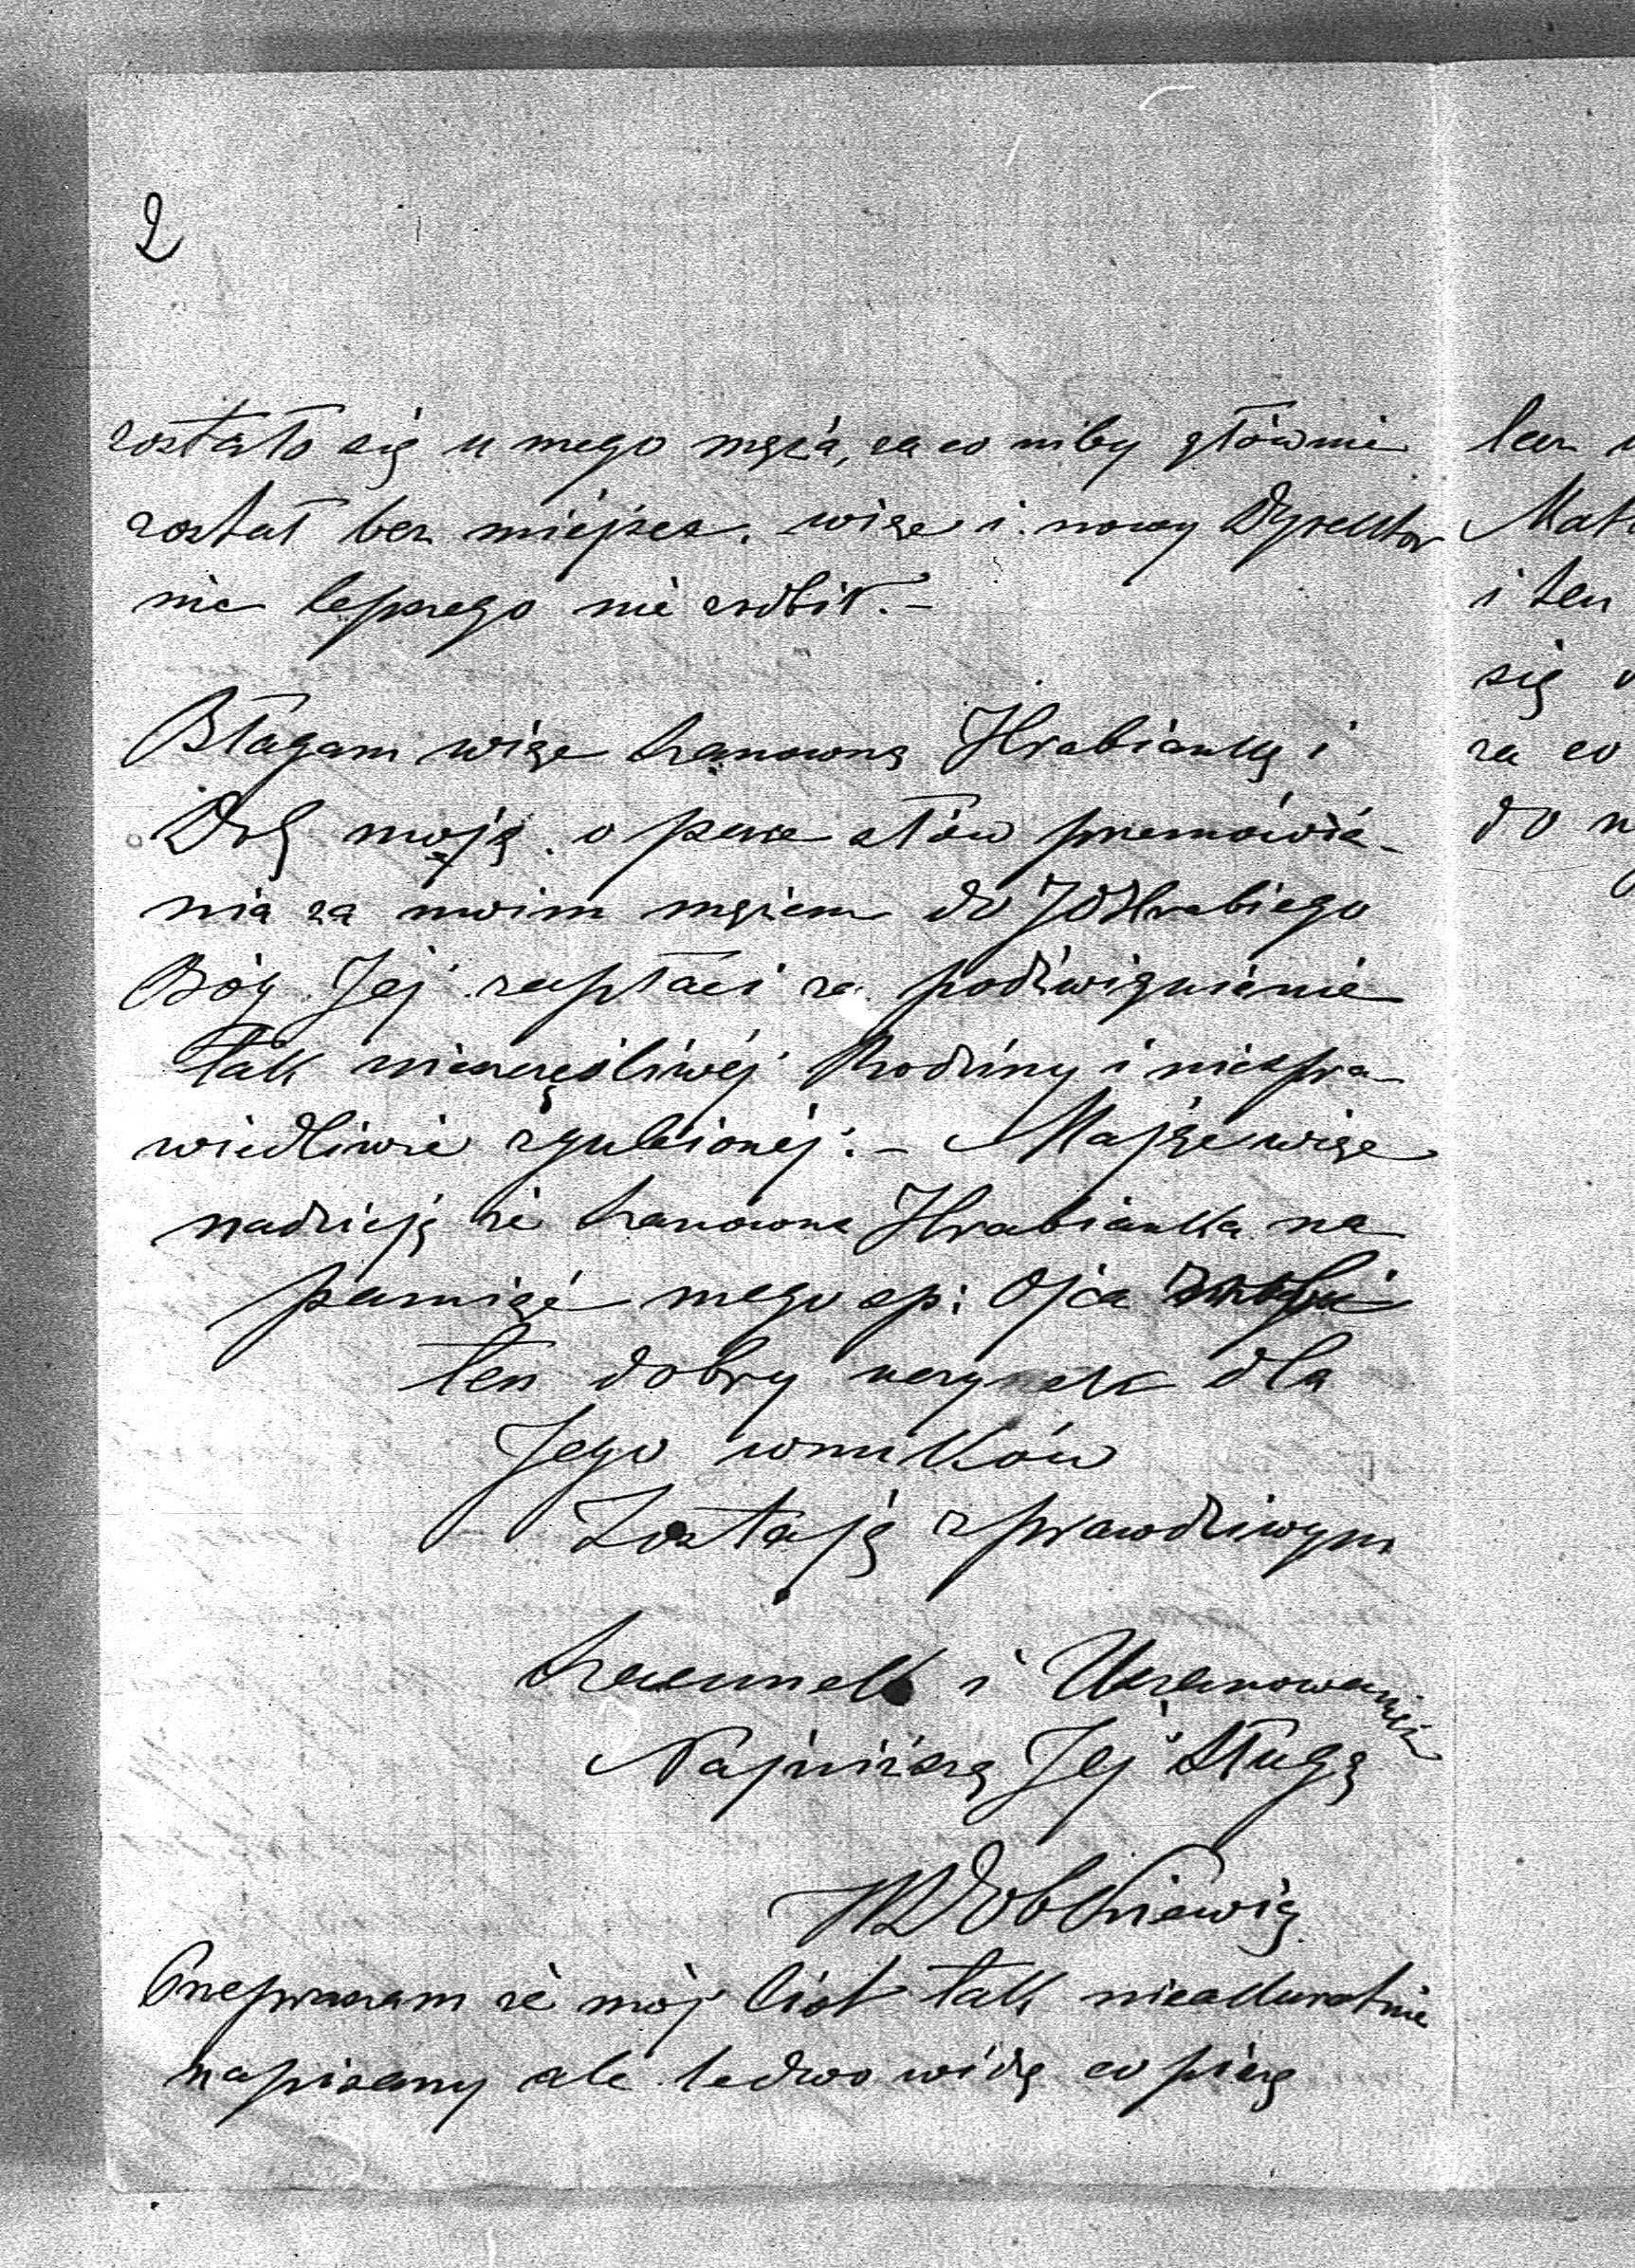 2
zostało się u mego męża, za co niby głównie
został bez miejsca. więc i nowy Dyrektor
nic lepszego nie zrobił.-
Błagam więc Szanowną Hrabiankę i
moją o parę słów przemówie-
nia za moim mężem do JWHrabiego
Bóg Jej zapłaci za podźwignienie
tak nieszczęśliwej Rodziny i niespra-
wiedliwie zgubionej.- Mając więc
nadzieję że Szanowna Hrabianka na
pamięć mego sp: Ojca zrobi
ten dobry uczynek dla
Jego wnuków
Zostaję z prawdziwym
Szacunek i Uszanowaniem
Najniższą Jej sługą
Przepraszam że mój list tak nieakuratnie
napisany ale ledwo widzę co piszę
len
Mat
i ten
się
za co
do n